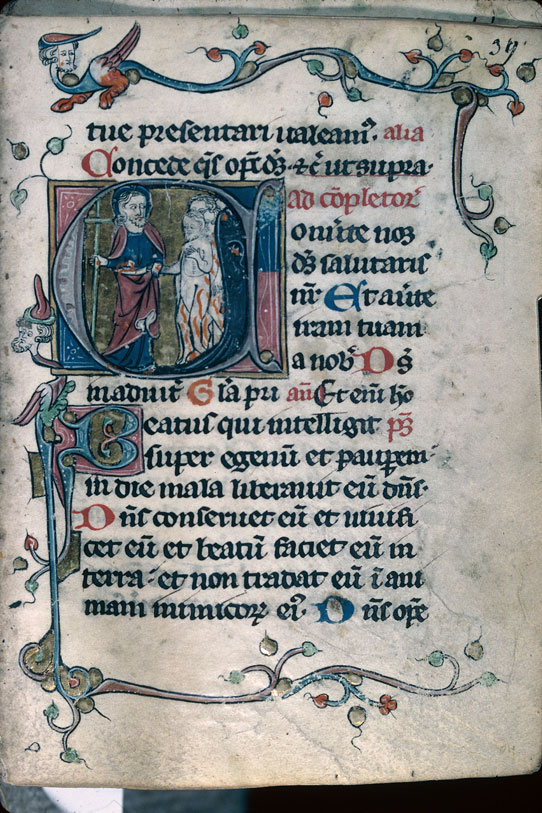 39
tue presentari valeam⁹. alia
Concede q̄s op̄ē d̄s. ⁊ c̄ ut supra.
ad cō̄pletoꝝ
Conv̄te nos
d̄s salutaris
nr̄ Et av̄te
iram tuam
a nob̄ D̄s
In adiut̄ Gl̄a pr̄i an̄ Et eni ho
Beatus qui intelligit p̄s
super egenū et paupem.
in die mala liberavit eū dn̄s.
Dn̄s conservet eū et vivifi
cet eū et beatū faciet eū in
terra. et non tradat eū ī ani
mam inimicoꝝ ei⁹. Dn̄s opē